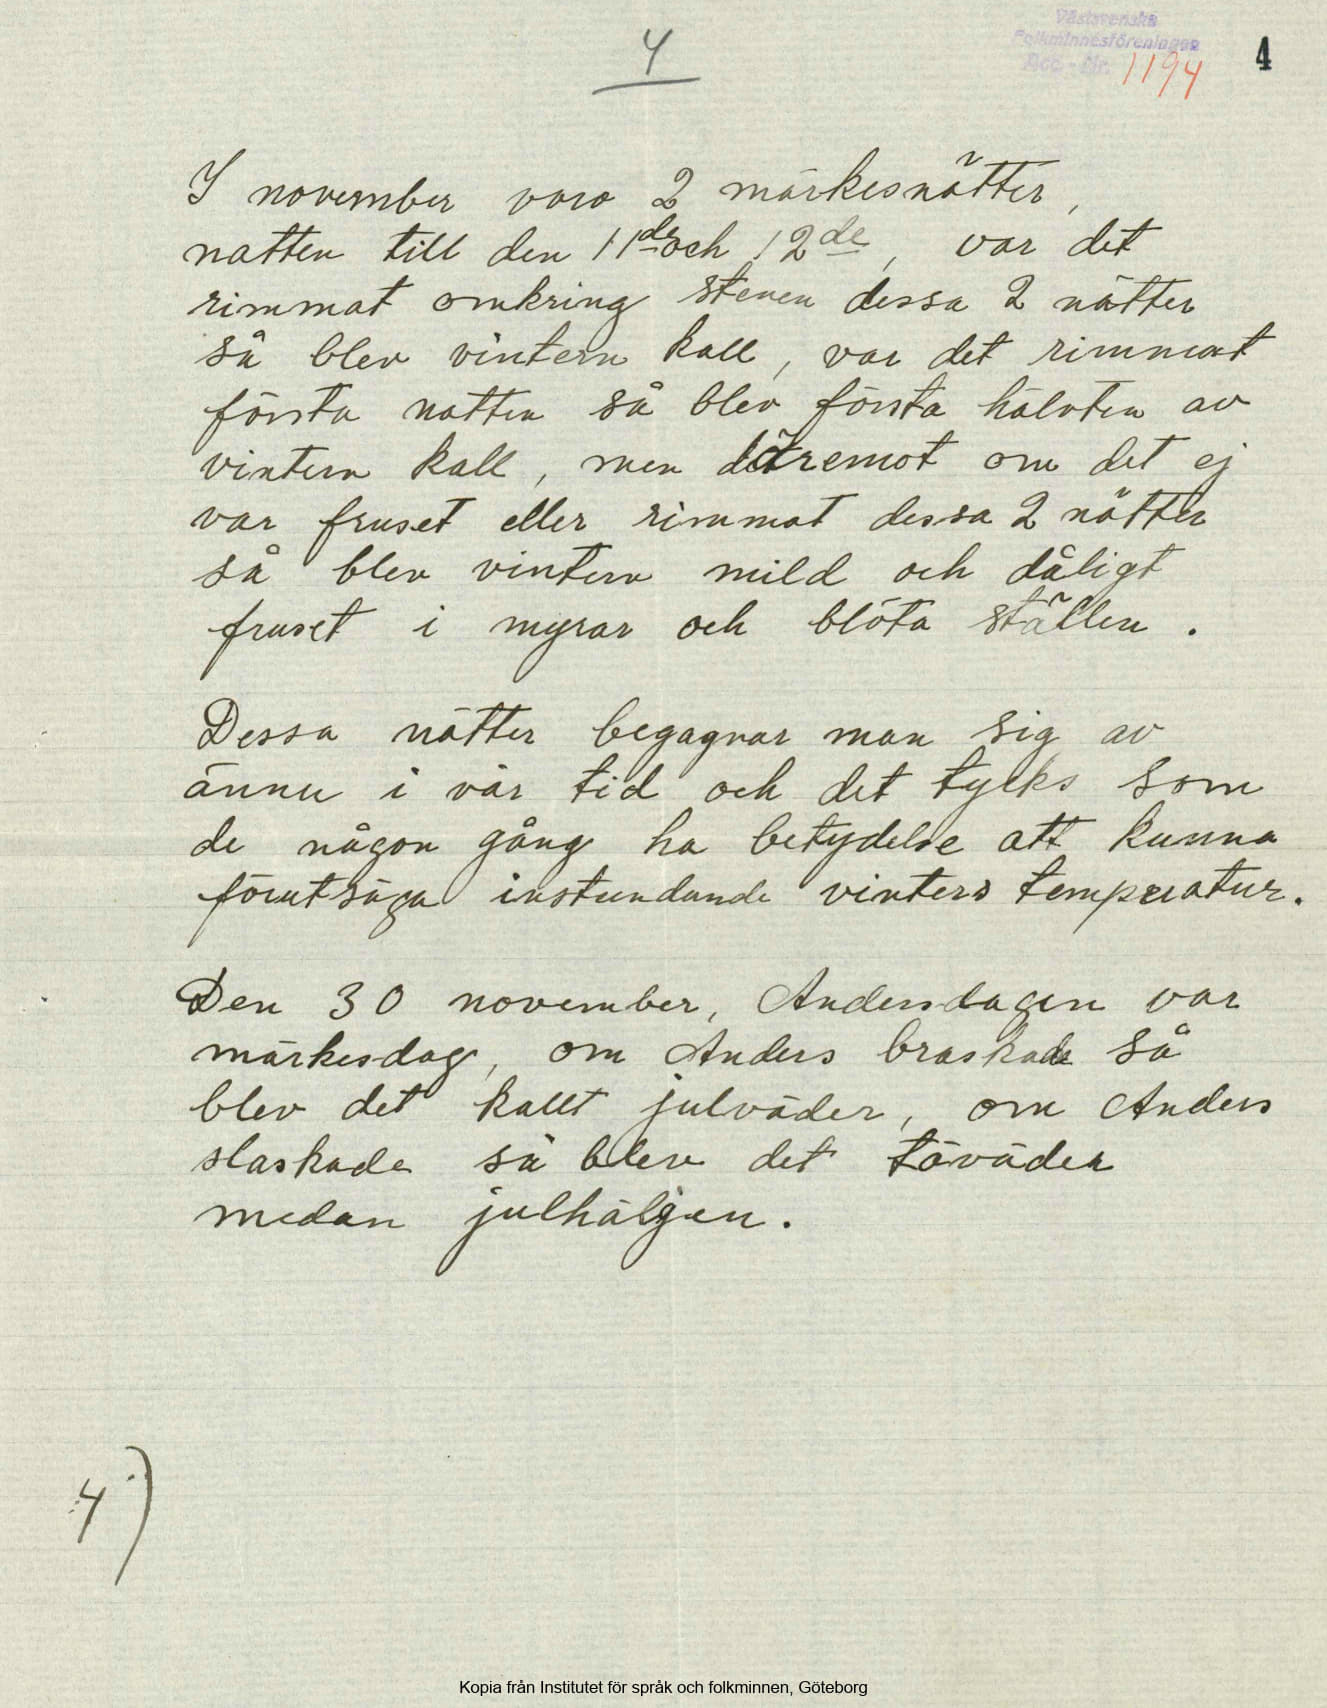 4
Västsvenska
Folkminnesföreningen
Acc. - Nr. 1194
4
I november voro 2 märkesnätter,
natten till den 11de och 12de, var det
rimmat omkring stenen dessa 2 nätter
så blev vintern kall, var det rimmat
första natten så blev första hälvten av
vintern kall, men däremot om det ej
var fruset eller rimmat dessa 2 nätter
så blev vintern mild och dåligt
fruset i myrar och blöta ställen.
Dessa nätter begagnar man sig av
ännu i vår tid och det tycks som
de någon gång ha betydelse att kunna
förutsäga instundande vinters temperatur.
Den 30 november, Andersdagen var
märkesdag, om Anders braskade så
blev det kallt julväder, om Anders
slaskade så blev det töväder
medan julhälgen.
4)
Kopia från Institutet för språk och folkminnen, Göteborg